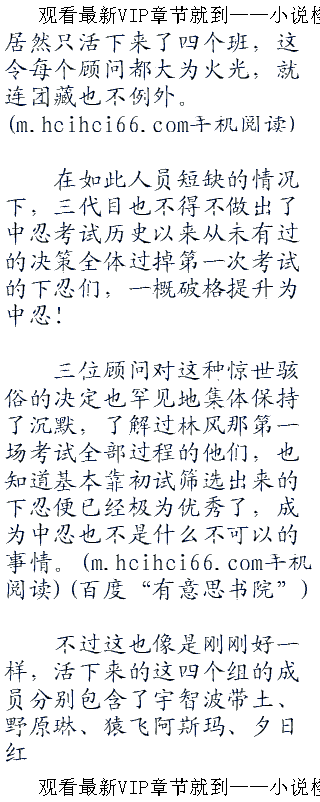 观看最新VIP章节就到——小说检
居然只活下来了四个班，这
令每个顾问都大为火光，就
连团藏也不例外。
(m.hcihci66.com手机阅读)
在如此人员短缺的情况
下，三代目也不得不做出了
中忍考试历史以来从未有过
的决策全体过掉第一次考试
的下忍们，一概破格提升为
中忍！
三位顾问对这种惊世骇
俗的决定也罕见地集体保持
了沉默，了解过林风那第一
场考试全部过程的他们，也
知道基本靠初试筛选出来的
下忍便已经极为优秀了，成
为中忍也不是什么不可以的
事情。(m.hcihci66.com手机
阅读)(百度“有意思书院”)
不过这也像是刚刚好一
样，活下来的这四个组的成
员分别包含了宇智波带土、
野原琳、猿飞阿斯玛、夕日
红
观看最新VIP章节就到——小说检